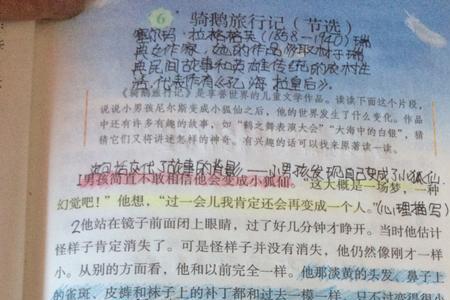 6 骑鹅旅行记（节选）
塞尔玛·拉格洛夫(1858-1940)瑞
典女作家,她的作品多取材于瑞
典民间故事和英雄传
代表作有《
《骑鹅旅行记》是享誉世界的儿童文学作品。读读下面这个片段，
说说小男孩尼尔斯变成小狐仙之后，他的世界发生了什么变化。作品
中还有许多有趣的故事，如“鹤之舞表演大会”“大海中的白银”，猜
猜它们又将讲述怎样的神奇。有兴趣的话可以找来原著读一读。
交代了故事的背景——小男孩发现自己变成了小狐仙
1男孩简直不敢相信他会变成小狐仙。“这大概是一场梦，一种
幻觉吧！”他想，“过一会儿我肯定还会再变成一个人。”(心理描写)
2他站在镜子前面闭上眼睛，过了好几分钟才睁开。当时他估计
怪样子肯定消失了。可是怪样子并没有消失，他仍然像刚才一样
小。从别的方面看，他和以前完全一样。他那淡黄的头发、鼻子上
的雀斑、皮裤和袜子上的补丁都和过去一模一样，只不过变得很小